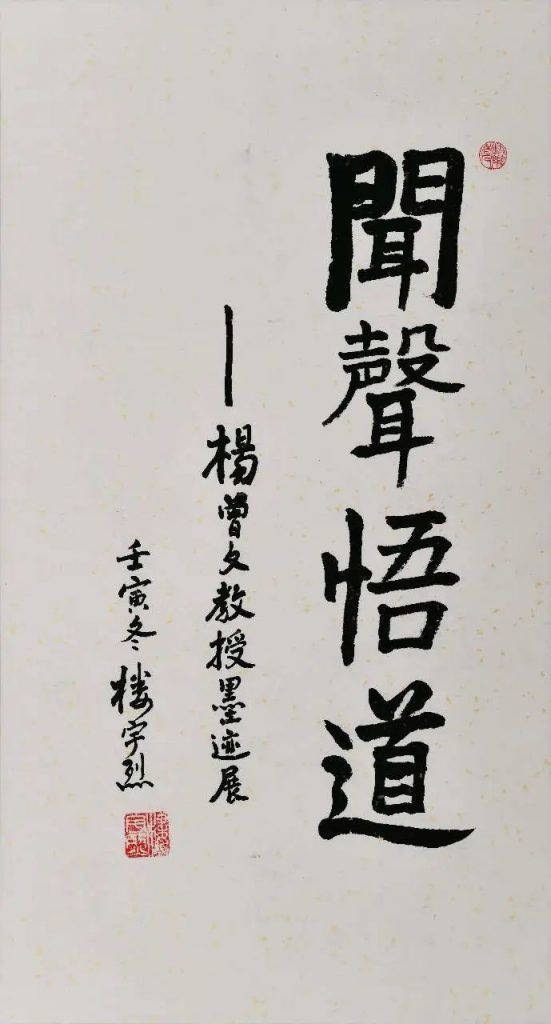 聞聲悟道
—楊曾文教授墨迹展
壬寅冬 楼宇烈